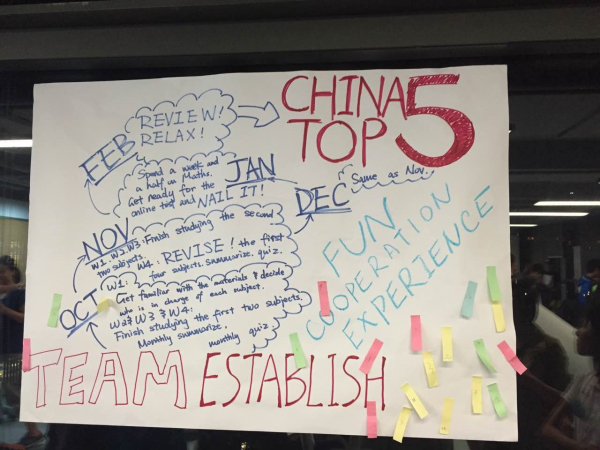 CHINA
TOP 5
REVIEW!
RELAX!
FEB
Spend a week and
a half in Maths.
Get ready for the
online test and NAIL IT!
JAN
Same as Nov.
DEC
NOV
W1. W2. W3: Finish studying the second
two subjects.
W4: REVISE! the first
four subjects. summarize. quiz.
OCT
W1:
Get familiar with the materials & decide
who is in charge of each subject.
W2 & W3 & W4:
Finish studying the first two subjects.
Monthly summarize. monthly quiz.
FUN
COOPERATION
EXPERIENCE
TEAM ESTABLISH